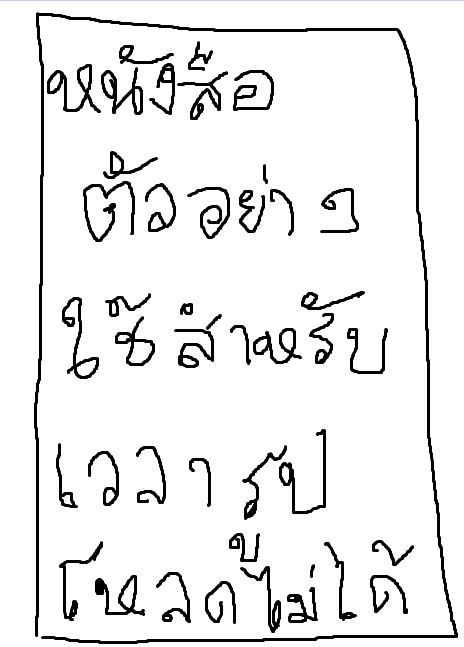 หนังสือ
ตัวอย่าง
ใช้สำหรับ
เวลารูป
โหลดไม่ได้